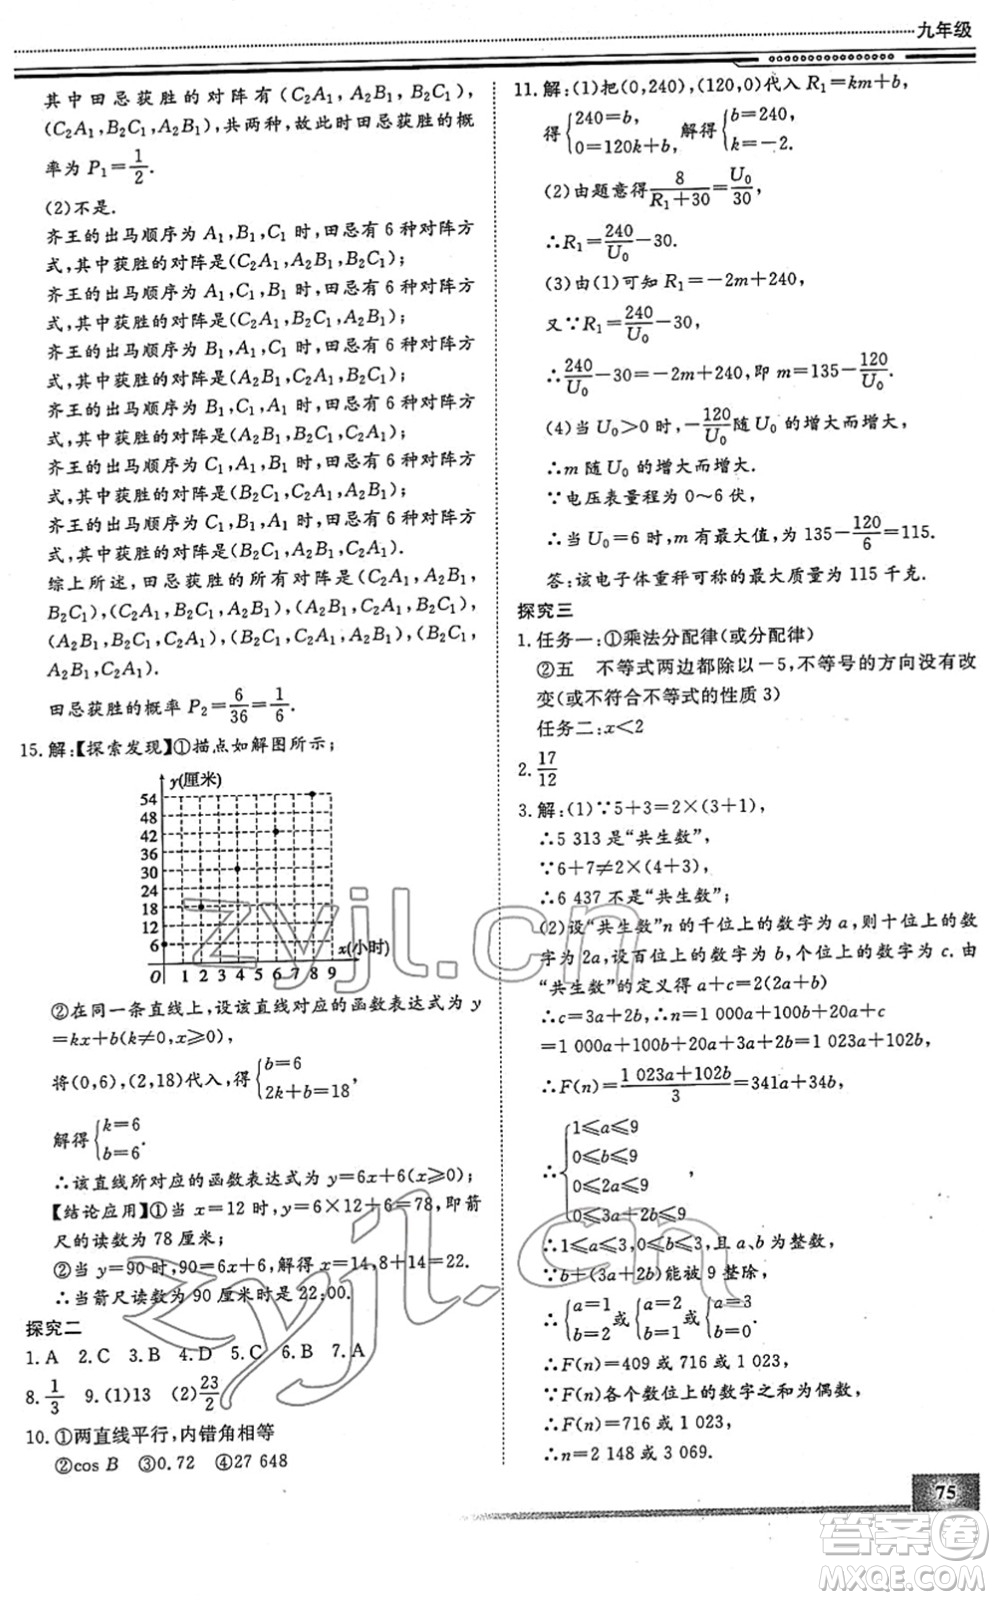 九年级
其中田忌获胜的对阵有(C₂A₁,A₂B₁,B₂C₁),
(C₂A₁,B₂C₁,A₂B₁),共两种,故此时田忌获胜的概
率为 P₁=1/2.
(2)不是.
齐王的出马顺序为 A₁,B₁,C₁ 时,田忌有 6 种对阵方
式,其中获胜的对阵是(C₂A₁,A₂B₁,B₂C₁);
齐王的出马顺序为 A₁,C₁,B₁ 时,田忌有 6 种对阵方
式,其中获胜的对阵是(C₂A₁,B₂C₁,A₂B₁);
齐王的出马顺序为 B₁,A₁,C₁ 时,田忌有 6 种对阵方
式,其中获胜的对阵是(A₂B₁,C₂A₁,B₂C₁);
齐王的出马顺序为 B₁,C₁,A₁ 时,田忌有 6 种对阵方
式,其中获胜的对阵是(A₂B₁,B₂C₁,C₂A₁);
齐王的出马顺序为 C₁,A₁,B₁ 时,田忌有 6 种对阵方
式,其中获胜的对阵是(B₂C₁,C₂A₁,A₂B₁);
齐王的出马顺序为 C₁,B₁,A₁ 时,田忌有 6 种对阵方
式,其中获胜的对阵是(B₂C₁,A₂B₁,C₂A₁).
综上所述,田忌获胜的所有对阵是(C₂A₁,A₂B₁,
B₂C₁),(C₂A₁,B₂C₁,A₂B₁),(A₂B₁,C₂A₁,B₂C₁),
(A₂B₁,B₂C₁,C₂A₁),(B₂C₁,C₂A₁,A₂B₁),(B₂C₁,
A₂B₁,C₂A₁).
田忌获胜的概率 P₂=6/36=1/6.
15.解:【探索发现】①描点如解图所示;
y(厘米)
54
48
42
36
30
24
18
12
6
x(小时)
O 1 2 3 4 5 6 7 8 9
②在同一条直线上,设该直线对应的函数表达式为 y
=kx+b(k≠0,x≥0),
将(0,6),(2,18)代入,得{b=6 2k+b=18,
解得{k=6 b=6.
∴该直线所对应的函数表达式为 y=6x+6(x≥0);
【结论应用】①当 x=12 时,y=6×12+6=78,即箭
尺的读数为 78 厘米;
②当 y=90时,90=6x+6,解得 x=14,8+14=22.
∴当箭尺读数为 90 厘米时是 22:00.
探究二
1.A 2.C 3.B 4.D 5.C 6.B 7.A
8.1/3 9.(1)13 (2)23/2
10.①两直线平行,内错角相等
②cos B ③0.72 ④27 648
11.解:(1)把(0,240),(120,0)代入 R₁=km+b,
得{240=b, 0=120k+b, 解得{b=240, k=-2.
(2)由题意得8/(R₁+30)=U₀/30,
∴R₁=240/U₀-30.
(3)由(1)可知 R₁=-2m+240,
又∵R₁=240/U₀-30,
∴240/U₀-30=-2m+240,即 m=135-120/U₀.
(4)当 U₀>0 时,-120/U₀随 U₀ 的增大而增大,
∴m 随 U₀ 的增大而增大.
∵电压表量程为 0~6 伏,
∴当 U₀=6 时,m 有最大值,为 135-120/6=115.
答:该电子体重秤可称的最大质量为 115 千克.
探究三
1.任务一:①乘法分配律(或分配律)
②五 不等式两边都除以-5,不等号的方向没有改
变(或不符合不等式的性质 3)
任务二:x<2
2.17/12
3.解:(1)∵5+3=2×(3+1),
∴5 313 是“共生数”,
∵6+7≠2×(4+3),
∴6 437 不是“共生数”;
(2)设“共生数”n 的千位上的数字为 a,则十位上的数
字为 2a,设百位上的数字为 b,个位上的数字为 c,由
“共生数”的定义得 a+c=2(2a+b)
∴c=3a+2b,∴n=1 000a+100b+20a+c
=1 000a+100b+20a+3a+2b=1 023a+102b
∴F(n)=(1 023a+102b)/3=341a+34b,
∴{1≤a≤9 0≤b≤9 0≤2a≤9 0≤3a+2b≤9,
∴1≤a≤3,0≤b≤3,且 a、b 为整数,
∵b+(3a+2b)能被 9 整除,
∴{a=1 b=2或{a=2 b=1或{a=3 b=0,
∴F(n)=409 或 716 或 1 023,
∵F(n)各个数位上的数字之和为偶数,
∴F(n)=716 或 1 023,
∴n=2 148 或 3 069.
75
zyjl.cn
zyjl.cn
答案圈
MXQE.COM